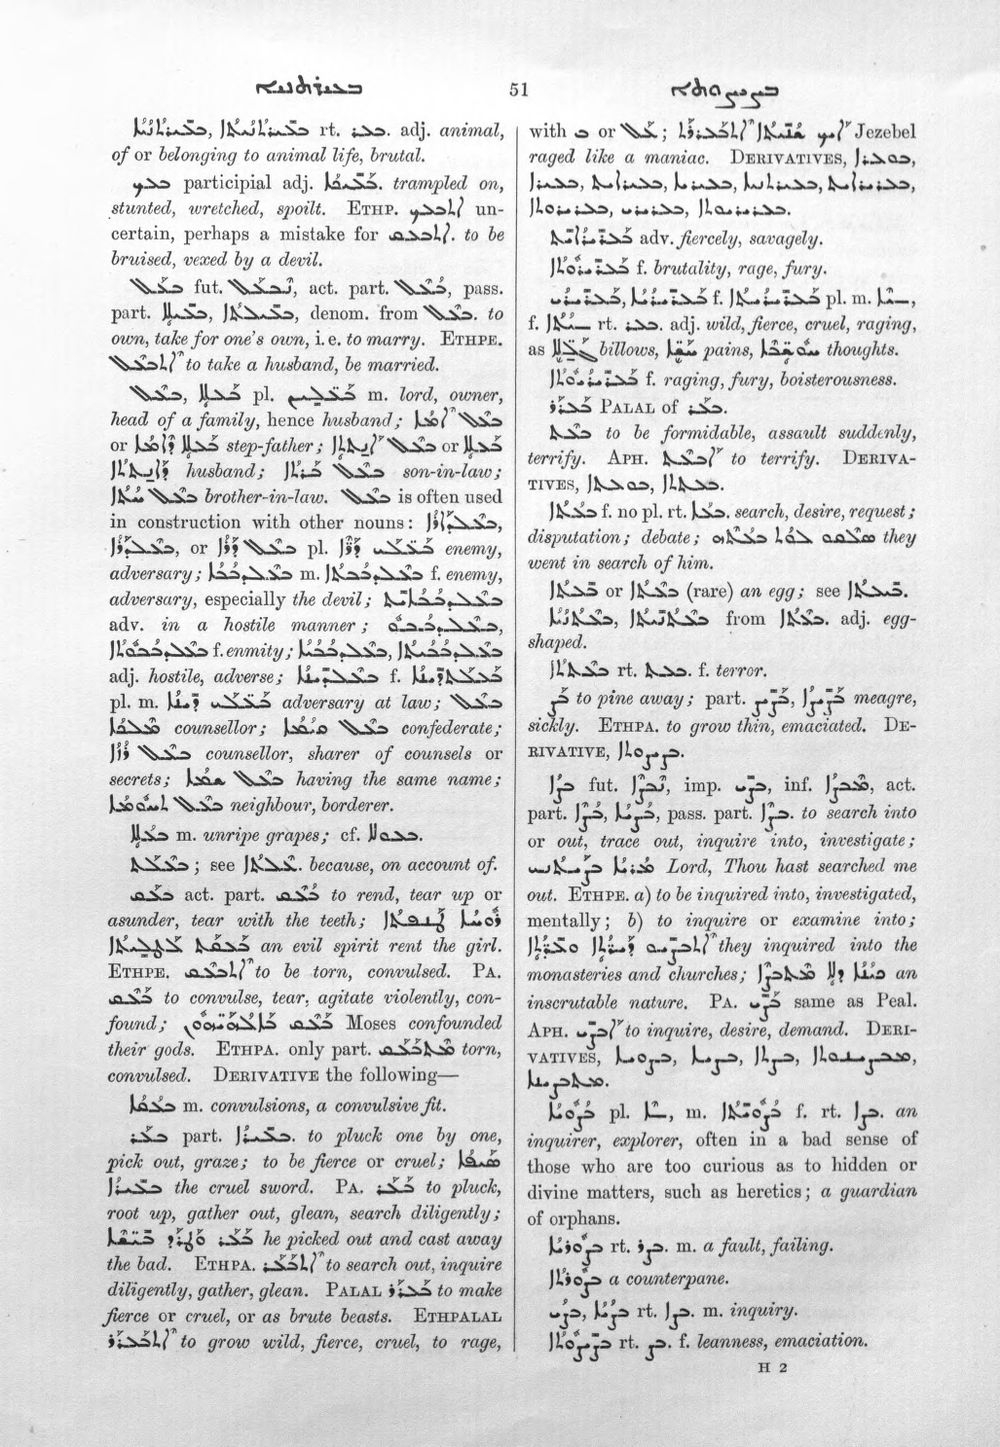 ܒܥܝܪܬܢܝܐ 51 ܒܨܝܨܘܬܐ
ܒܥܝܪܬܢܝܐ, ܒܥܝܪܬܢܝܬܐ rt. ܒܥܪ. adj. animal,
of or belonging to animal life, brutal.
ܒܥܨ participial adj. trampled on,
stunted, wretched, spoilt. ETHP. ܐܬܒܥܨ un-
certain, perhaps a mistake for ܐܬܒܥܩ. to be
bruised, vexed by a devil.
ܒܥܠ fut. ܢܒܥܠ, act. part. ܒܥܠ, pass.
part. ܒܥܝܠܐ, ܒܥܝܠܬܐ, denom. from ܒܥܠ. to
own, take for one's own, i.e. to marry. ETHPE.
ܐܬܒܥܠ to take a husband, be married.
ܒܥܠ, ܒܥܠܐ pl. m. lord, owner,
head of a family, hence husband; ܒܥܠ ܐܡܐ
or ܒܥܠܐ ܕܐܡܐ step-father; ܒܥܠ ܐܢܬܬܐ or ܒܥܠܐ
ܕܐܢܬܬܐ husband; ܒܥܠ ܒܪܬܐ son-in-law;
ܒܥܠ ܚܬܐ brother-in-law. ܒܥܠ is often used
in construction with other nouns: ܒܥܠܕܪܐ,
ܒܥܠܕܪܐ, or ܒܥܠ ܕܪܐ pl. ܒܥܠܝ ܕܪܐ enemy,
adversary; ܒܥܠܕܒܒܐ m. ܒܥܠܕܒܒܬܐ f. enemy,
adversary, especially the devil; ܒܥܠܕܒܒܐܝܬ
adv. in a hostile manner;
ܒܥܠܕܒܒܘܬܐ f. enmity; ܒܥܠܕܒܒܝܐ, ܒܥܠܕܒܒܝܬܐ
adj. hostile, adverse; ܒܥܠܕܝܢܐ f. ܒܥܠܬܕܝܢܐ
pl. m. ܒܥܠܝ ܕܝܢܐ adversary at law; ܒܥܠ
ܡܠܟܐ counsellor; ܒܥܠ ܩܝܡܐ confederate;
ܒܥܠ ܪܐܙܐ counsellor, sharer of counsels or
secrets; ܒܥܠ ܫܡܐ having the same name;
ܒܥܠ ܬܚܘܡܐ neighbour, borderer.
ܒܥܠܐ m. unripe grapes; cf.
ܒܥܠܬ; see ܥܠܬܐ. because, on account of.
ܒܥܩ act. part. ܒܥܩ to rend, tear up or
asunder, tear with the teeth; ܪܘܚܐ
ܒܥܩܬ ܠܛܠܝܬܐ an evil spirit rent the girl.
ETHPE. ܐܬܒܥܩ to be torn, convulsed. PA.
ܒܥܩ to convulse, tear, agitate violently, con-
found; ܒܥܩ ܠܐܠܗܝܗܘܢ Moses confounded
their gods. ETHPA. only part. ܡܬܒܥܩ torn,
convulsed. DERIVATIVE the following—
ܒܥܩܐ m. convulsions, a convulsive fit.
ܒܥܪ part. ܒܥܝܪܐ. to pluck one by one,
pick out, graze; to be fierce or cruel; ܣܝܦܐ
ܒܥܝܪܐ the cruel sword. PA. ܒܥܪ to pluck,
root up, gather out, glean, search diligently;
ܒܥܪ ܘܛܪܕ ܒܝܫܐ he picked out and cast away
the bad. ETHPA. ܐܬܒܥܪ to search out, inquire
diligently, gather, glean. PALAL ܒܥܪܪ to make
fierce or cruel, or as brute beasts. ETHPALAL
ܐܬܒܥܪܪ to grow wild, fierce, cruel, to rage,
with ܒ or ܥܠ; Jezebel
raged like a maniac. DERIVATIVES, ܒܘܥܪܐ,
ܒܥܝܪܐ, ܒܥܝܪܐܝܬ, ܒܥܪܝܪܐܝܬ,
ܒܥܪܝܪܘܬܐ, ܒܥܪܝܪܝ, ܒܥܪܝܪܝܘܬܐ.
ܒܥܪܝܪܐܝܬ adv. fiercely, savagely.
ܒܥܪܝܪܘܬܐ f. brutality, rage, fury.
ܒܥܪܝܪܝ, ܒܥܪܝܪܝܐ f. ܒܥܪܝܪܝܬܐ pl. m.
f. rt. ܒܥܪ. adj. wild, fierce, cruel, raging,
as ܓܠܠܐ billows, ܚܫܐ pains, ܚܘܫܒܐ thoughts.
ܒܥܪܝܪܝܘܬܐ f. raging, fury, boisterousness.
ܒܥܪܪ PALAL of ܒܥܪ.
ܒܥܬ to be formidable, assault suddenly,
terrify. APH. ܐܒܥܬ to terrify. DERIVA-
TIVES, ܒܘܥܬܐ, ܒܥܬܬܐ.
ܒܥܬܐ f. no pl. rt. ܒܥܐ. search, desire, request;
disputation; debate; ܣܠܩܘ ܠܗ ܒܥܬܗ they
went in search of him.
ܒܥܬܐ or ܒܥܬܐ (rare) an egg; see ܒܝܥܬܐ.
ܒܥܬܢܝܐ, ܒܥܬܢܝܬܐ from ܒܥܬܐ. adj. egg-
shaped.
ܒܥܬܬܐ rt. ܒܥܬ. f. terror.
ܒܨ to pine away; part. ܒܨܝܨ, ܒܨܝܨܐ meagre,
sickly. ETHPA. to grow thin, emaciated. DE-
RIVATIVE, ܒܨܝܨܘܬܐ.
ܒܨܐ fut. ܢܒܨܐ, imp. ܒܨܝ, inf. ܡܒܨܐ, act.
part. ܒܨܐ, ܒܨܝܐ, pass. part. ܒܨܐ. to search into
or out, trace out, inquire into, investigate;
ܡܪܝܐ ܒܨܝܬܢܝ Lord, Thou hast searched me
out. ETHPE. a) to be inquired into, investigated,
mentally; b) to inquire or examine into;
ܐܬܒܨܝܘ ܕܝܪܬܐ ܘܥܕܬܐ they inquired into the
monasteries and churches; ܟܝܢܐ ܕܠܐ ܡܬܒܨܐ an
inscrutable nature. PA. ܒܨܝ same as Peal.
APH. ܐܒܨܝ to inquire, desire, demand. DERI-
VATIVES, ܒܨܘܝܐ, ܒܨܝܐ, ܒܨܬܐ, ܡܒܨܝܢܘܬܐ,
ܡܬܒܨܝܢܐ.
ܒܨܘܝܐ pl. m. ܒܨܘܝܬܐ f. rt. ܒܨܐ. an
inquirer, explorer, often in a bad sense of
those who are too curious as to hidden or
divine matters, such as heretics; a guardian
of orphans.
ܒܨܘܪܝܐ rt. ܒܨܪ. m. a fault, failing.
ܒܨܘܪܬܐ a counterpane.
ܒܨܝ, ܒܨܝܐ rt. ܒܨܐ. m. inquiry.
ܒܨܝܨܘܬܐ rt. ܒܨ. f. leanness, emaciation.
H 2